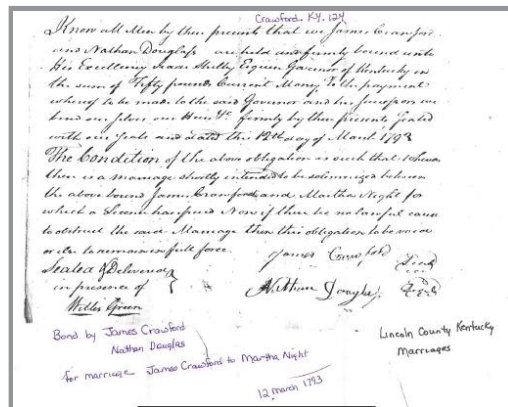 Crawford. KY. 124
Know all Men by these presents that we James Crawford
and Nathan Douglass are held and firmly bound unto
His Excellency Isaac Shelby Esquire Governor of Kentucky in
the sum of Fifty pounds Current Money To the payment
whereof to be made to the said Governor and his Successors we
bind our selves our Heirs &c. firmly by these presents Sealed
with our Seals and dated this 12th day of March 1793
The Condition of the above obligation is such that whereas
there is a marriage shortly intended to be solemnized between
the above bound James Crawford and Martha Night for
which a License has Now if there be no lawful cause
to obstruct the said Marriage then this obligation to be void
or else to remain in full force.
Sealed & Delivered
in presence of
Willis Green
James Crawford Seal
Nathan Douglass Seal
Bond by James Crawford
Nathan Douglas
for marriage James Crawford to Martha Night
12 March 1793
Lincoln County Kentucky
Marriages